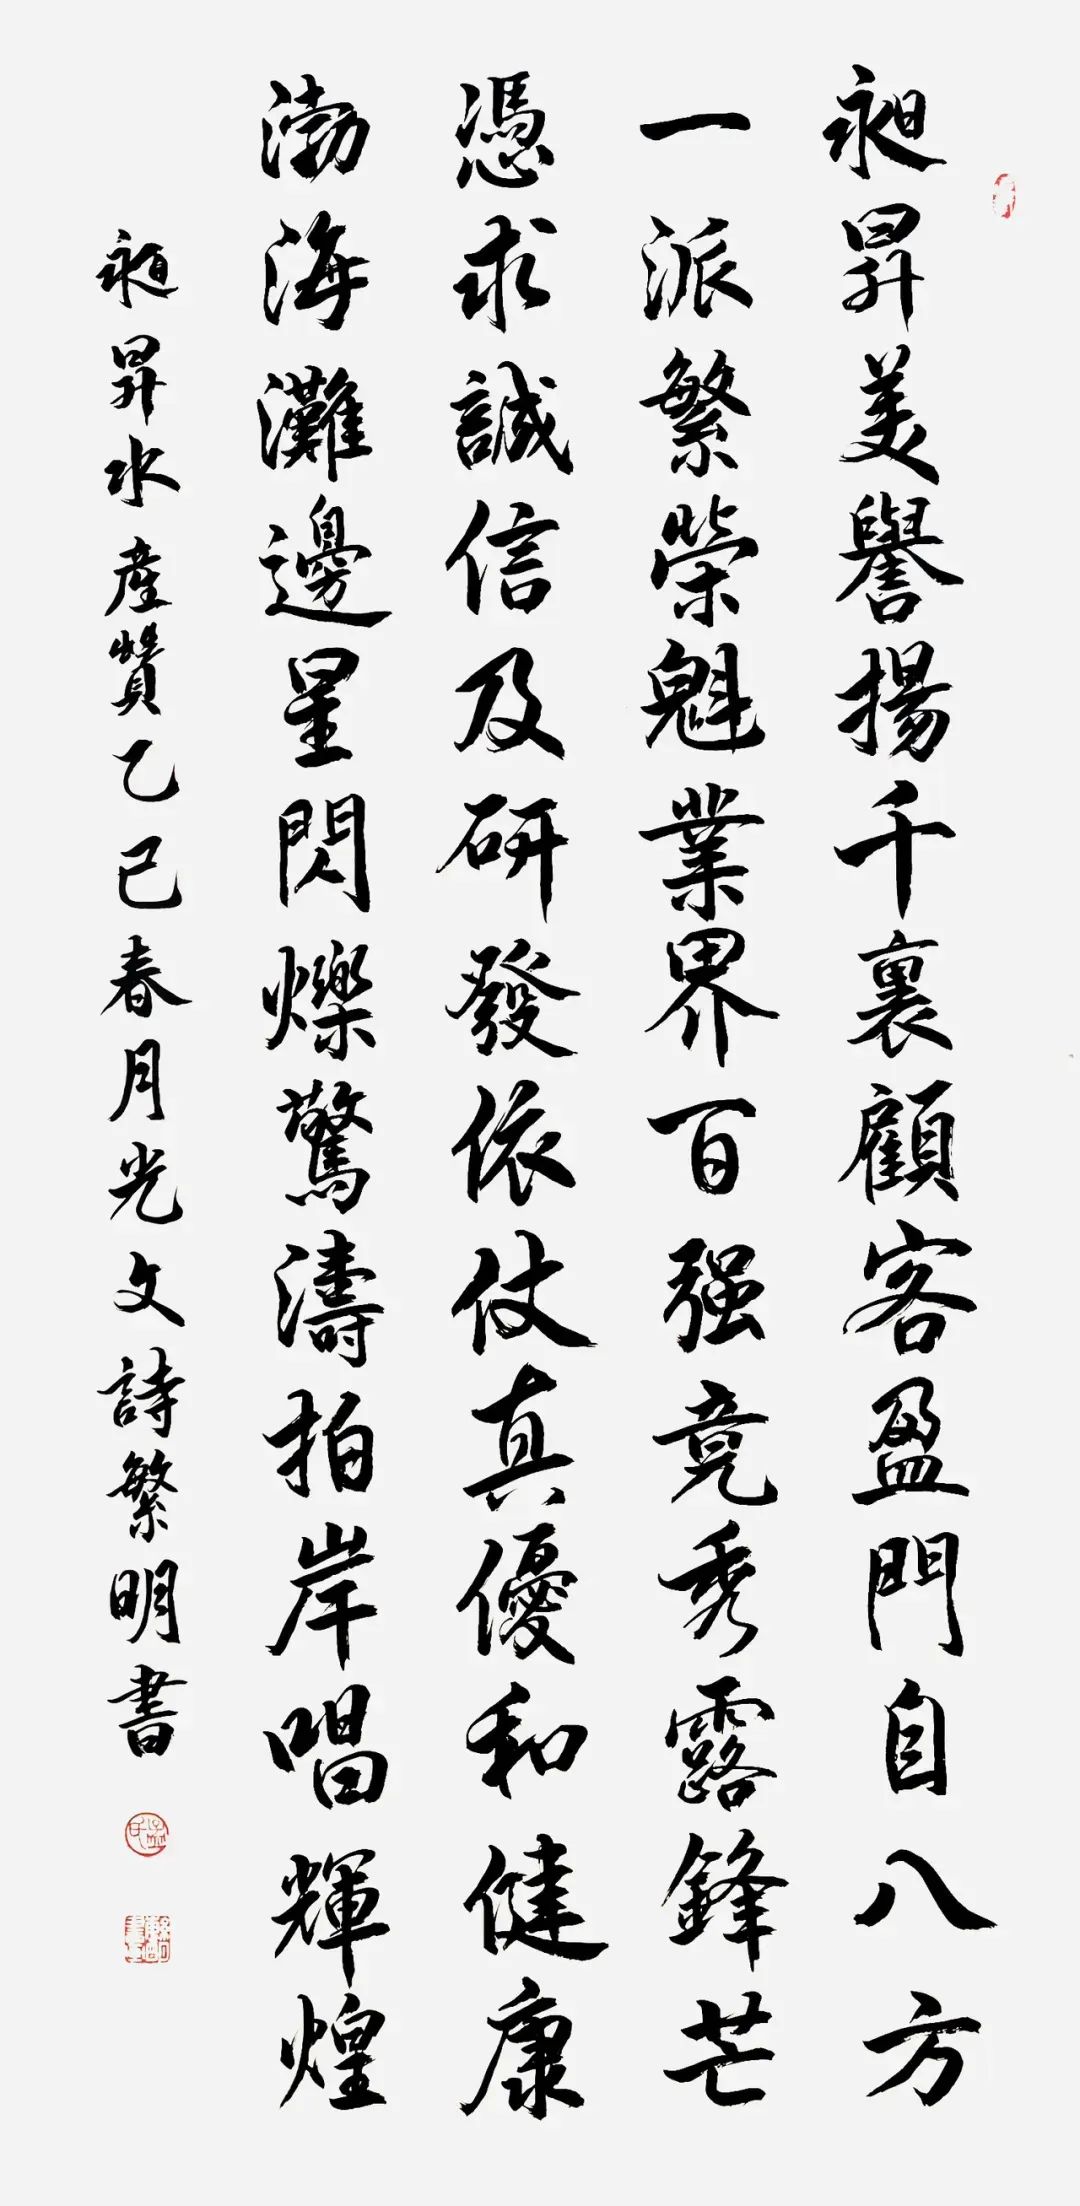 昶昇美譽揚千裏顧客盈門自八方
一派繁榮魁業界百强竞秀露鋒芒
憑求誠信及研發依仗真優和健康
渤海灘邊星閃爍驚濤拍岸唱輝煌
昶昇水產贊乙巳春月光文詩繁明書